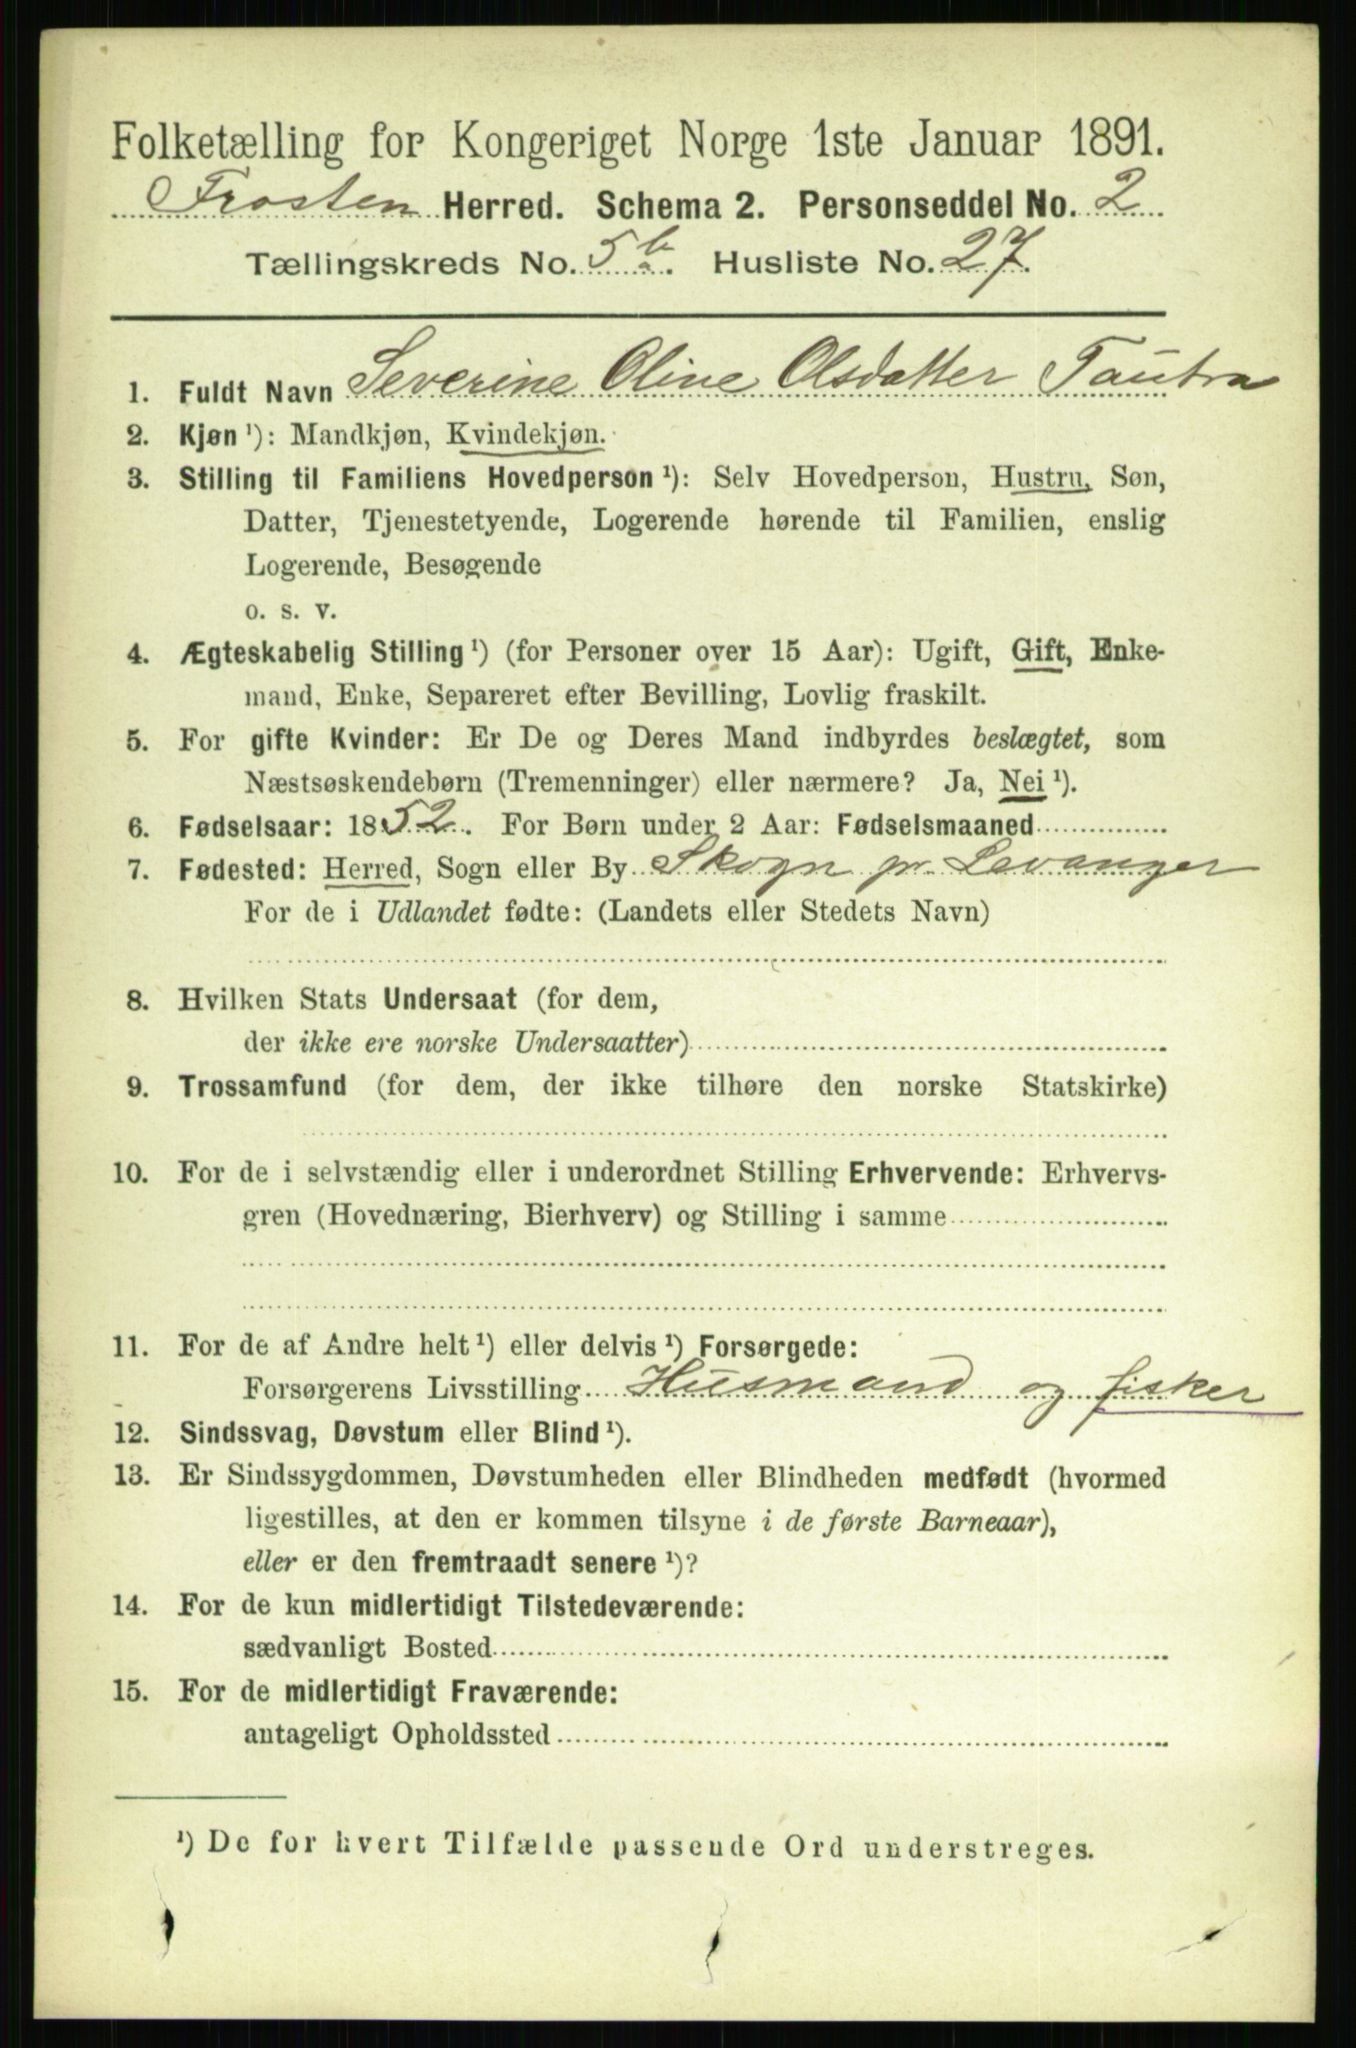 Folketælling for Kongeriget Norge 1ste Januar 1891.
Frosten Herred. Schema 2. Personseddel No. 2
Tællingskreds No. 5 b. Husliste No. 27.
1. Fuldt Navn Severine Oline Olsdatter Tautra
2. Kjøn ¹): Mandkjøn, Kvindekjøn.
3. Stilling til Familiens Hovedperson ¹): Selv Hovedperson, Hustru, Søn,
Datter, Tjenestetyende, Logerende hørende til Familien, enslig
Logerende, Besøgende
o. s. v.
4. Ægteskabelig Stilling ¹) (for Personer over 15 Aar): Ugift, Gift, Enke-
mand, Enke, Separeret efter Bevilling, Lovlig fraskilt.
5. For gifte Kvinder: Er De og Deres Mand indbyrdes beslægtet, som
Næstsøskendebørn (Tremenninger) eller nærmere? Ja, Nei ¹).
6. Fødselsaar: 1852. For Børn under 2 Aar: Fødselsmaaned
7. Fødested: Herred, Sogn eller By Skogn pr. Levanger
For de i Udlandet fødte: (Landets eller Stedets Navn)
8. Hvilken Stats Undersaat (for dem,
der ikke ere norske Undersaatter)
9. Trossamfund (for dem, der ikke tilhøre den norske Statskirke)
10. For de i selvstændig eller i underordnet Stilling Erhvervende: Erhvervs-
gren (Hovednæring, Bierhverv) og Stilling i samme
11. For de af Andre helt ¹) eller delvis ¹) Forsørgede:
Forsørgerens Livsstilling Husmand og fisker
12. Sindssvag, Døvstum eller Blind ¹).
13. Er Sindssygdommen, Døvstumheden eller Blindheden medfødt (hvormed
ligestilles, at den er kommen tilsyne i de første Barneaar),
eller er den fremtraadt senere ¹)?
14. For de kun midlertidigt Tilstedeværende:
sædvanligt Bosted
15. For de midlertidigt Fraværende:
antageligt Opholdssted
¹) De for hvert Tilfælde passende Ord understreges.